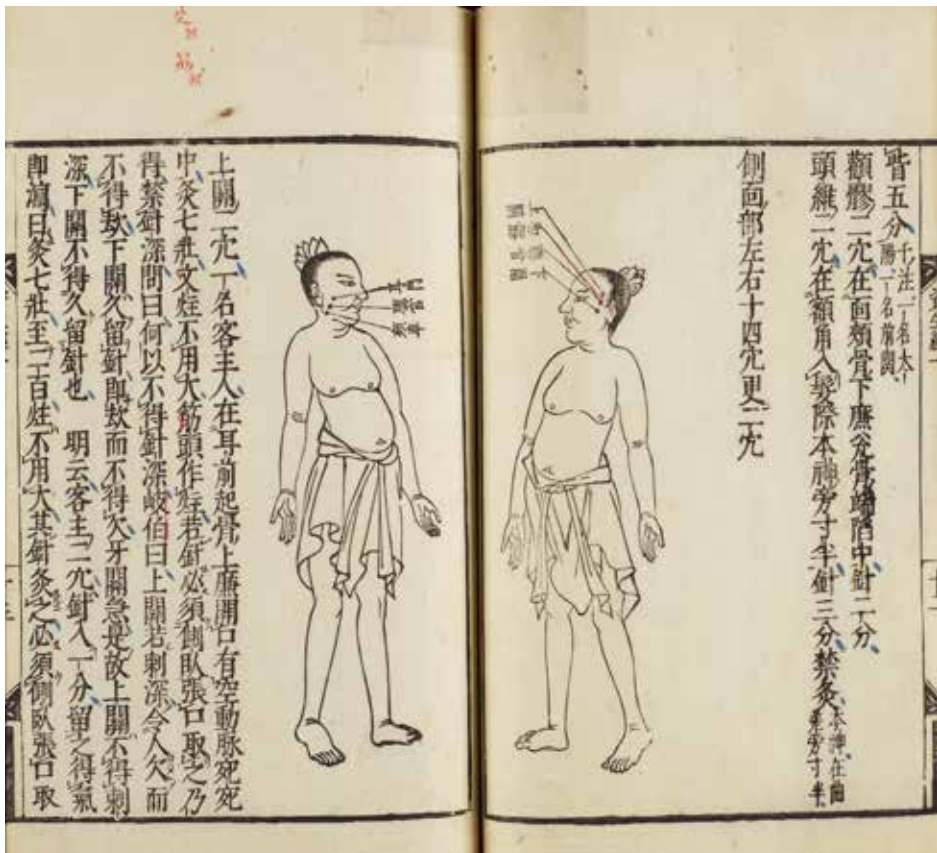 眥五分千注一名大陽一名前關
顴髎二穴在面頰骨下廉兌骨端陷中針二分
頭維二穴在額角入髮際本神旁寸半針三分禁灸本神在曲差旁寸半
側面部左右十四穴更二穴
耳門
聽宮
頰車
上關二穴一名客主人在耳前起骨上廉開口有空動脉宛宛
中灸七壯文炷不用大筋頭作炷若針必須側臥張口取之乃
得禁針深問曰何以不得針深岐伯曰上關若刺深令人欠而
不得欬下關久留針即欬而不得欠牙關急是故上關不得刺
深下關不得久留針也 明云客主二穴針入一分留之得氣
即瀉日灸七壯至二百炷不用大其針灸之必須側臥張口取